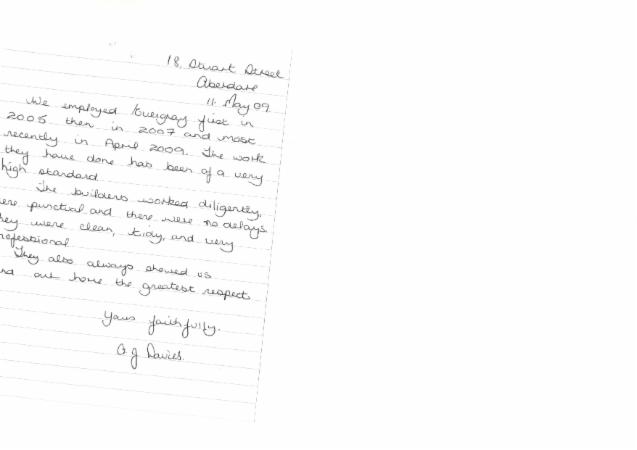 18, Stuart Street
Aberdare
11 May 09
We employed first in
2005 then in 2007 and most
recently in April 2009. The work
they have done has been of a very
high standard
The builders worked diligently,
ere punctual and there were no delays
hey were clean, tidy, and very
rofessional
They also always showed us
nd our home the greatest respect.
Yours faithfully.
G J Davies.